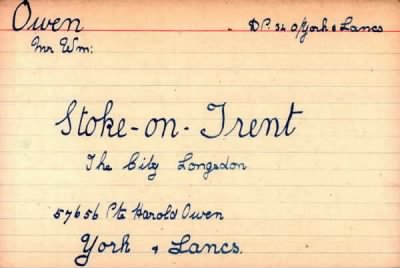 Owen
D P. 34 O/York & Lancs
Mr Wm:
Stoke-on-Trent
The City Longsdon
57656 Pte Harold Owen
York & Lancs.